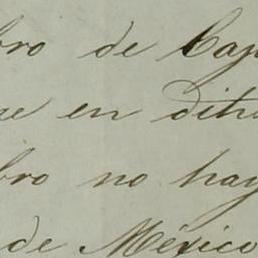 bro de Cap
ue en dith
bro no hay
de México